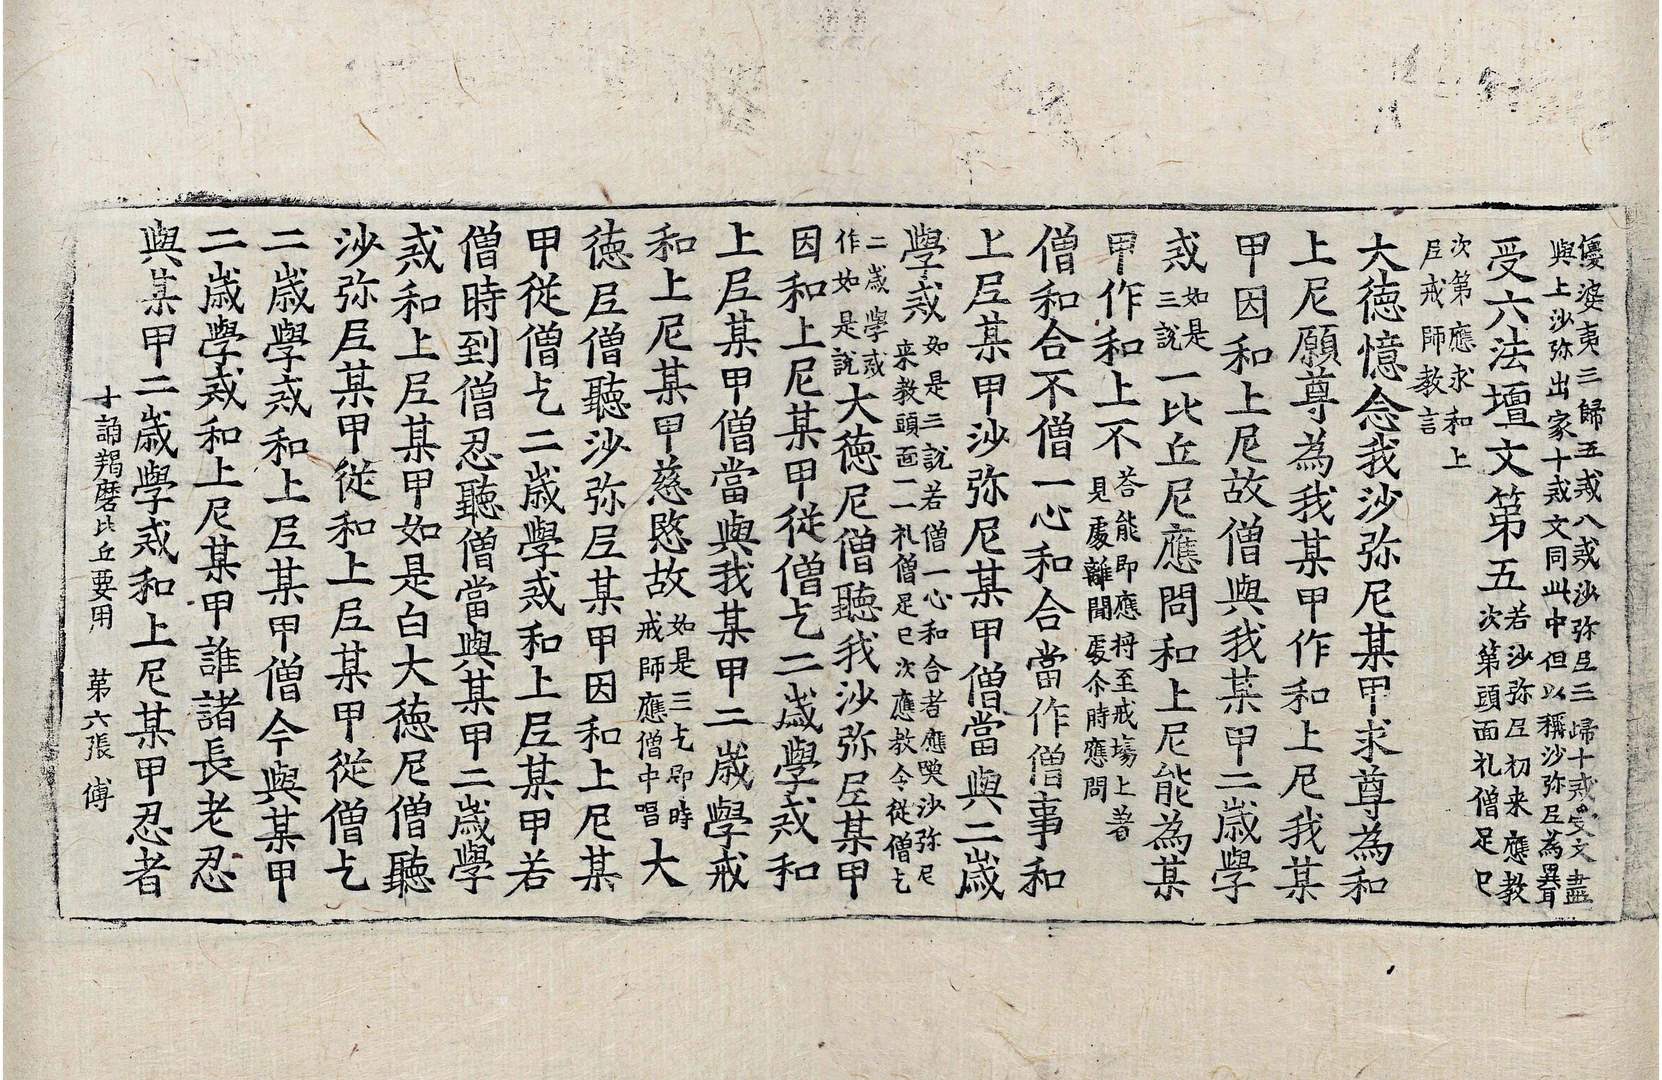 優婆夷三歸五戒八戒沙弥𡰱三歸十戒受文盡
與上沙弥出家十戒文同此中但以稱沙弥𡰱為異耳
受六法壇文第五若沙弥𡰱初来應教
次第頭面礼僧足已
次第應求和上
𡰱戒師教言
大徳憶念我沙弥尼某甲求尊為和
上尼願尊為我某甲作和上尼我某
甲因和上尼故僧與我某甲二歳學
戒如是
三說一比丘尼應問和上尼能為某
甲作和上不荅能即應将至戒場上著
見處離聞處尒時應問
僧和合不僧一心和合當作僧事和
上𡰱某甲沙弥尼某甲僧當與二歳
學戒如是三說若僧一心和合者應喚沙弥尼
来教頭面一一礼僧足已次應教令従僧乞
二歳學戒
作如是說大徳尼僧聽我沙弥𡰱某甲
因和上尼某甲従僧乞二歳學戒和
上𡰱某甲僧當與我某甲二歳學戒
和上尼某甲慈愍故如是三乞即時
戒師應僧中唱大
徳𡰱僧聽沙弥𡰱某甲因和上尼某
甲従僧乞二歳學戒和上𡰱某甲若
僧時到僧忍聽僧當與某甲二歳學
戒和上𡰱某甲如是白大徳尼僧聽
沙弥𡰱某甲従和上𡰱某甲従僧乞
二歳學戒和上𡰱某甲僧今與某甲
二歳學戒和上尼某甲誰諸長老忍
與某甲二歳學戒和上尼某甲忍者
十誦羯磨比丘要用　第六張　傅